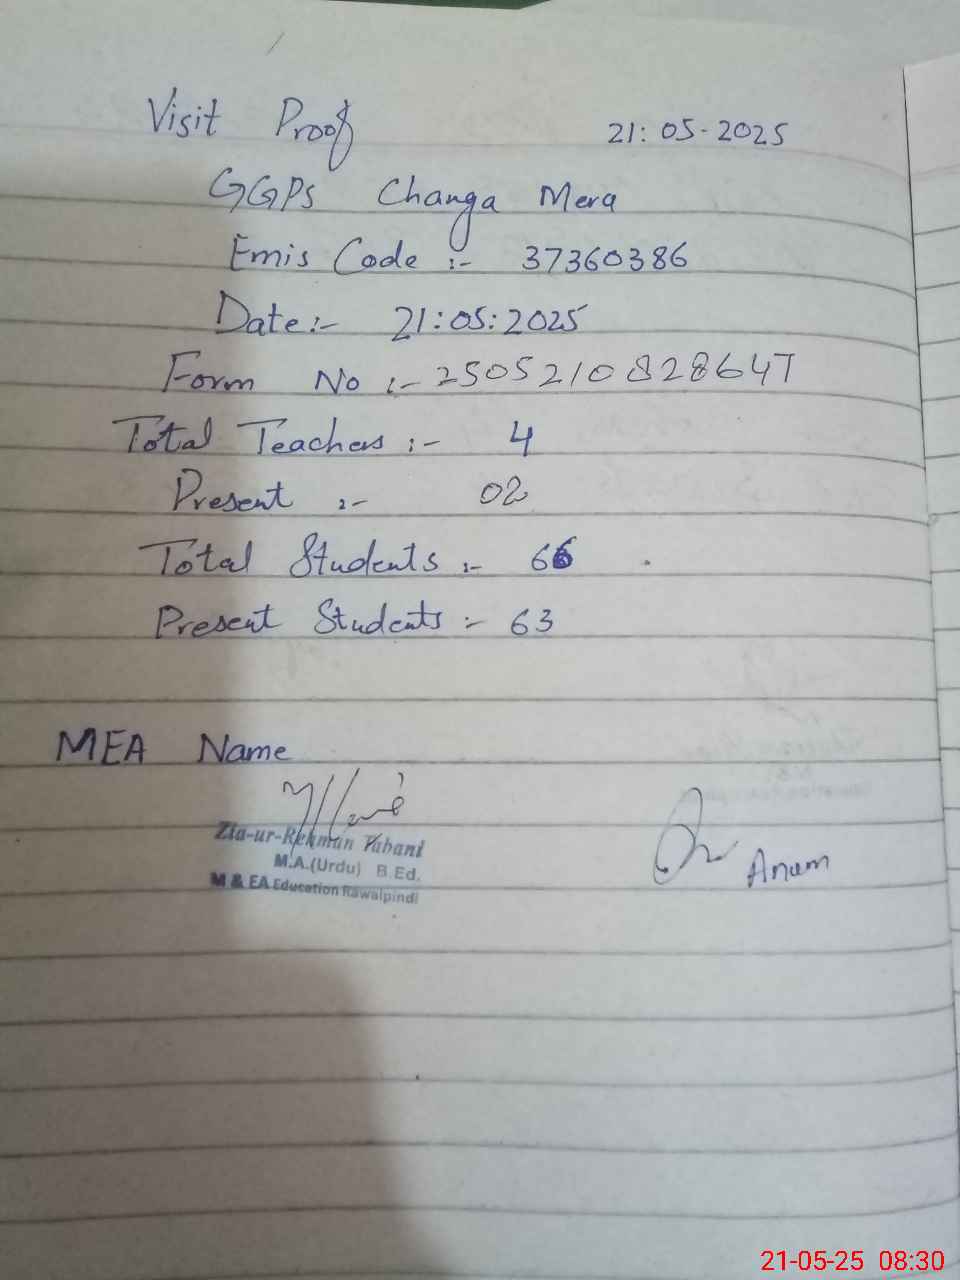 Visit Proof 21:05-2025
GGPS Changa Mera
Emis Code :- 37360386
Date:- 21:05:2025
Form No :- 250521082864T
Total Teachers :- 4
Present :- 02
Total Students :- 66
Present Students :- 63
MEA Name
Zia-ur-Rehman Tabani
M.A.(Urdu) B.Ed.
M & EA Education Rawalpindi
Anum
21-05-25 08:30